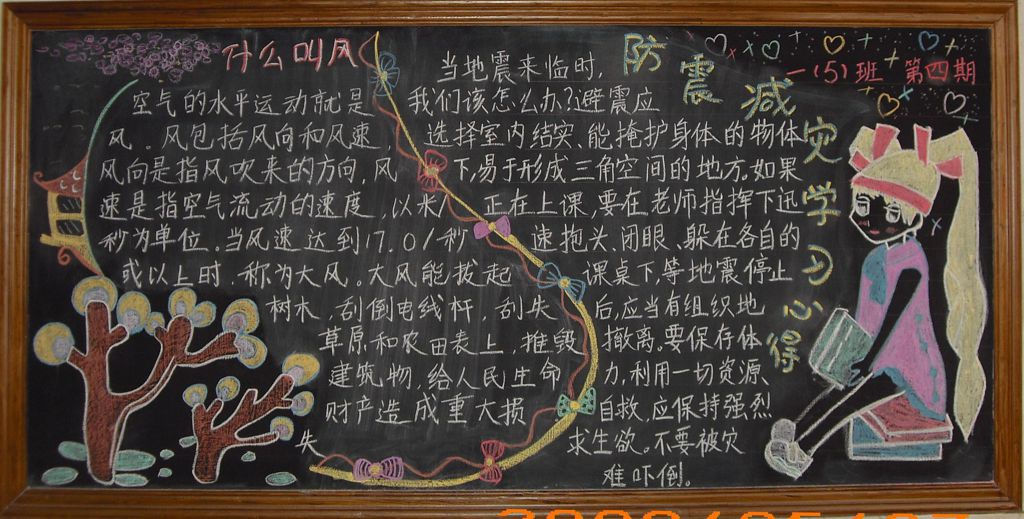 什么叫风
空气的水平运动就是
风。风包括风向和风速,
风向是指风吹来的方向,风
速是指空气流动的速度,以米/
秒为单位。当风速达到17.0/秒
或以上时,称为大风。大风能拔起
树木,刮倒电线杆,刮失
草原和农田表土,摧毁
建筑物,给人民生命
财产造成重大损
失
防震减灾学习心得
一(5)班 第四期
当地震来临时,
我们该怎么办?避震应
选择室内结实、能掩护身体的物体
下,易于形成三角空间的地方。如果
正在上课,要在老师指挥下迅
速抱头、闭眼、躲在各自的
课桌下,等地震停止
后,应当有组织地
撤离。要保存体
力,利用一切资源、
自救,应保持强烈
求生欲。不要被灾
难吓倒。